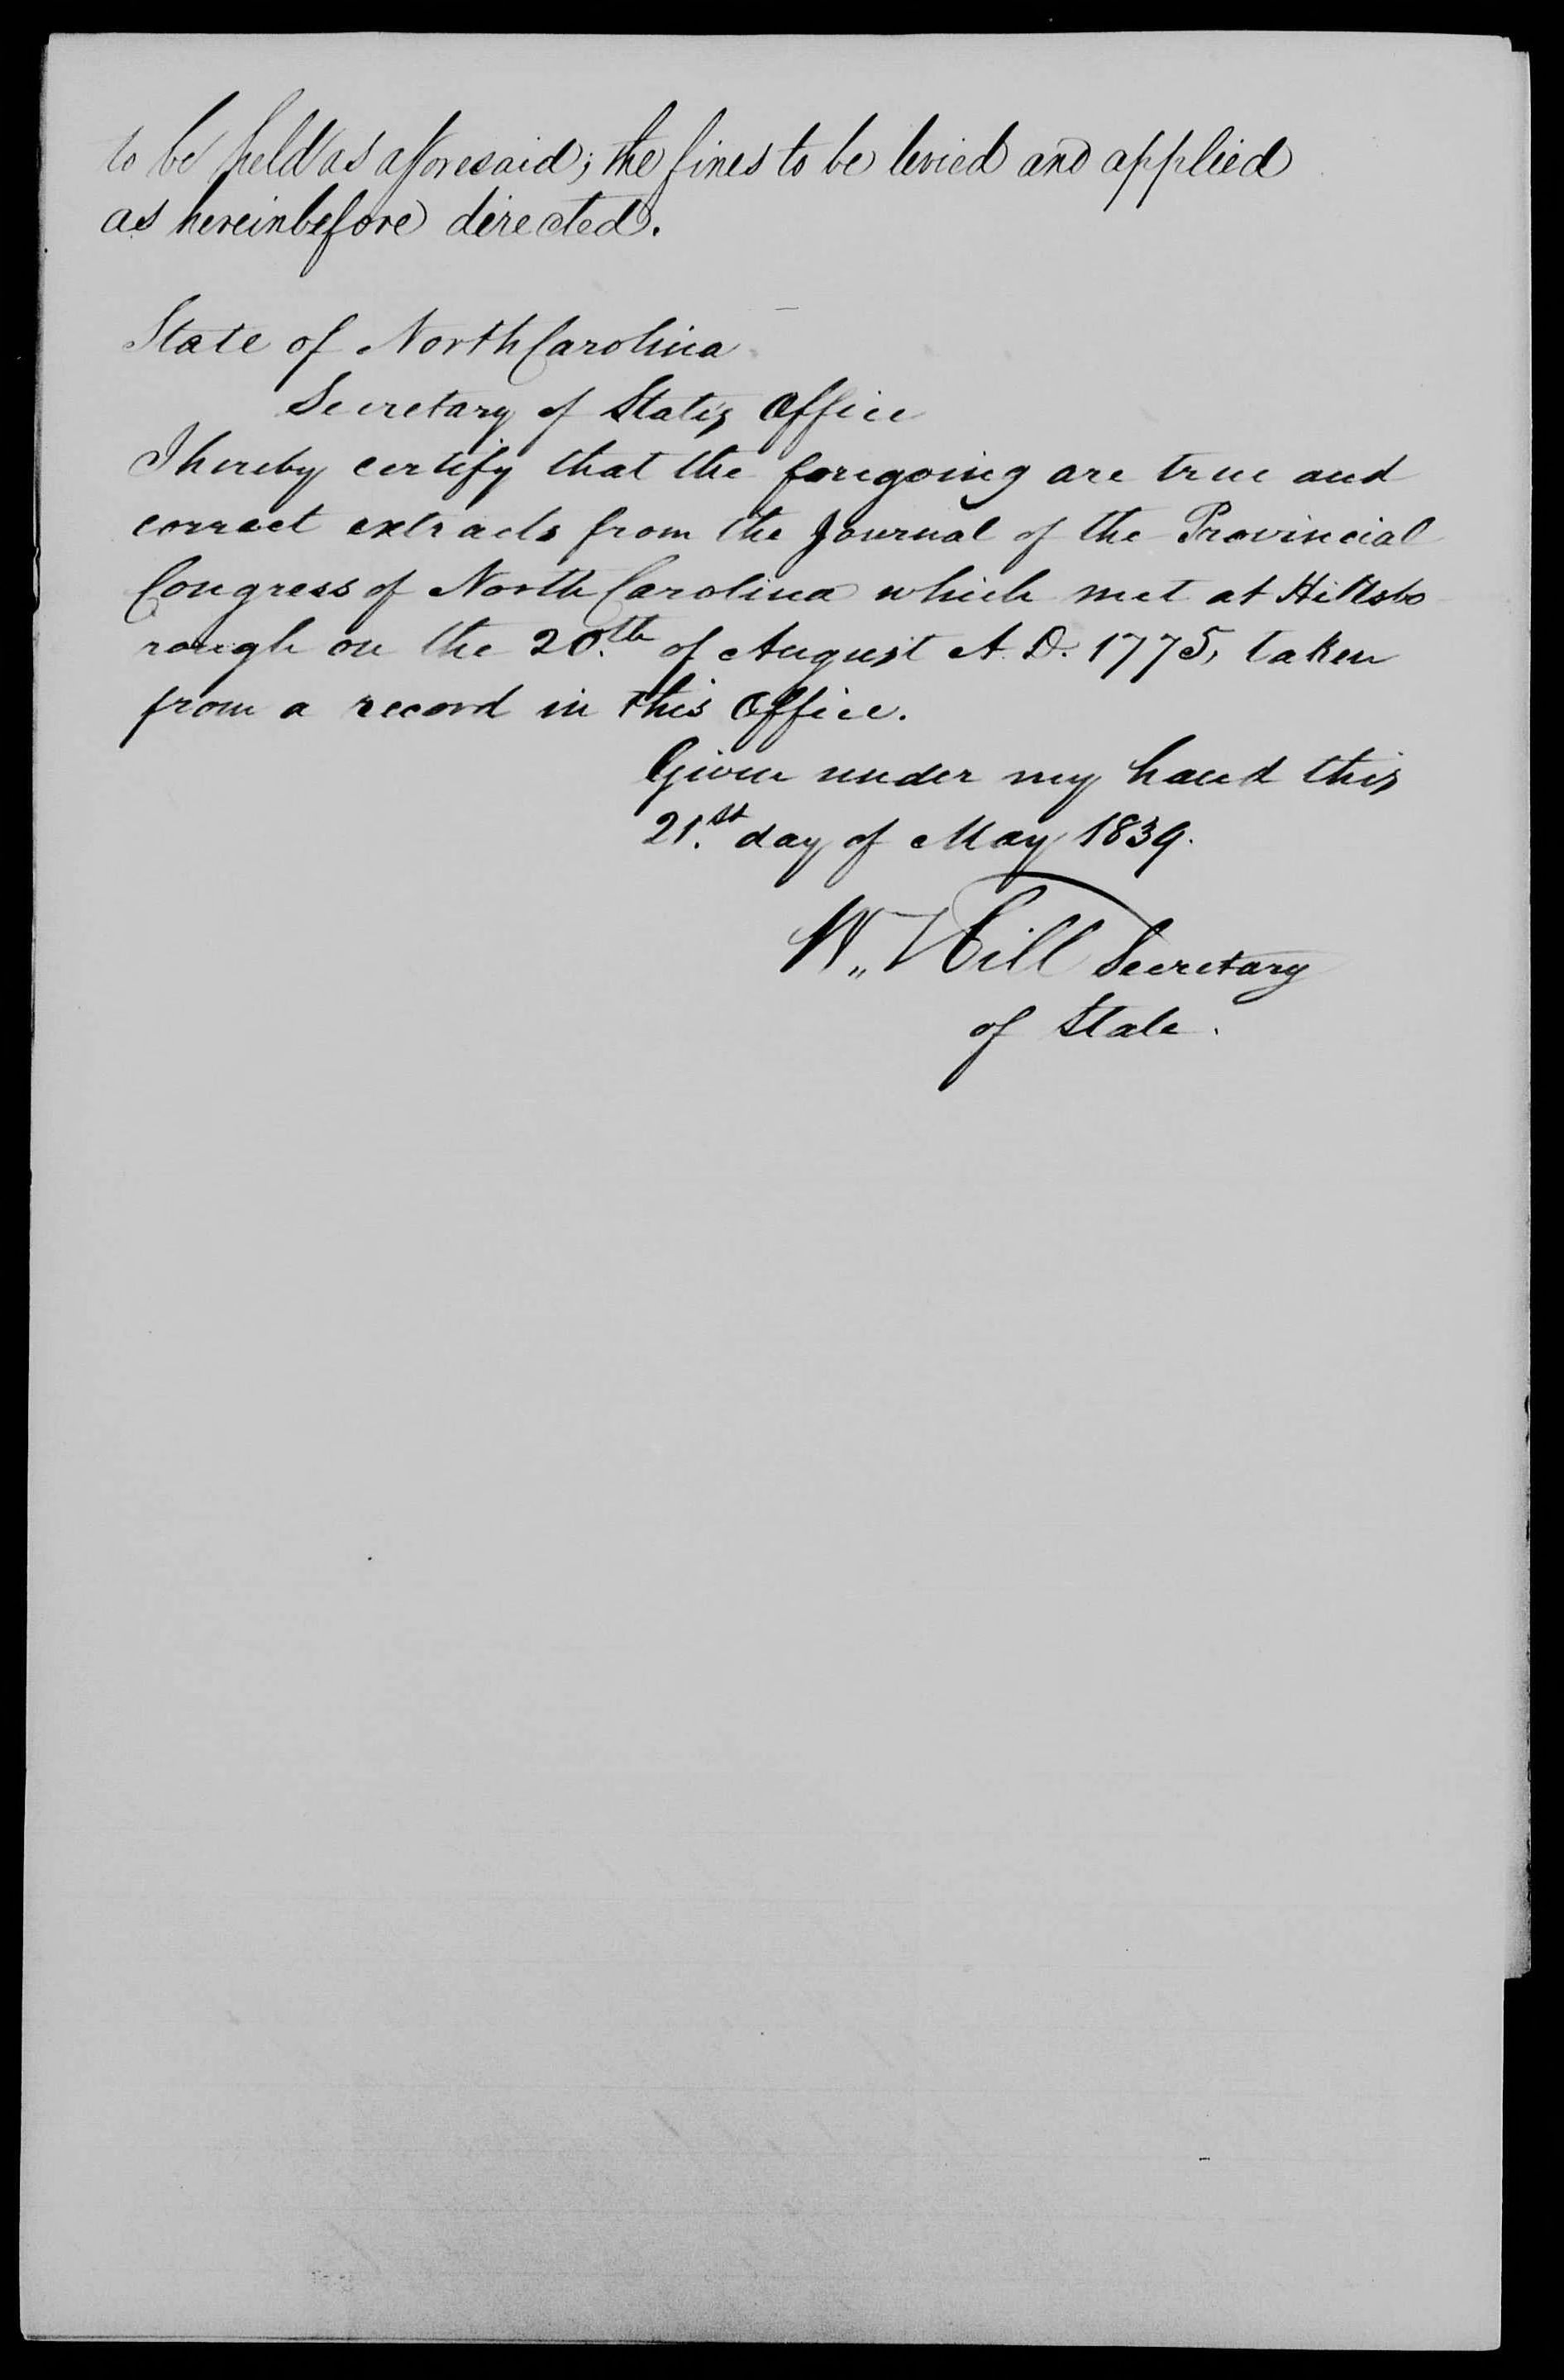 to be held as afforesaid; the fines to be levied and applied
as hereinbefore directed.
State of North Carolina
Secretary of State's Office
I hereby certify that the foregoing are true and
correct extracts from the Journal of the Provincial
Congress of North Carolina which met at Hillsbo
rough on the 20.th of August A.D. 1775, taken
from a record in this Office.
Given under my hand this
21.st day of May 1839.
W,, Hill Secretary
of State.